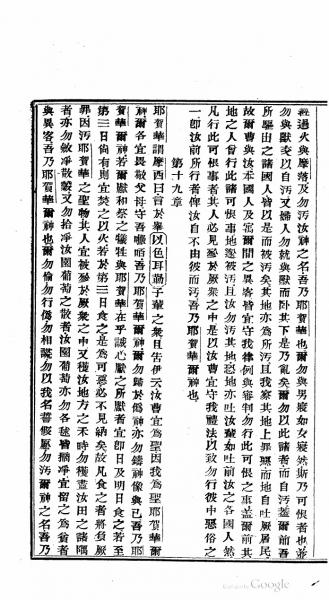 經過火與摩落及勿汚汝神之名吾乃耶賀華也爾勿與男寢如女寢然斯乃可恨者也並
勿與獸交以自汚又婦人勿就與獸而卧其下是乃亂矣爾勿以此諸者而自汚蓋爾前吾
所驅出之諸國人皆以是而被汚矣其地亦為所汚且我察其地上罪孽而地自吐厥居民
故爾曹與汝本國人及寓爾間之異客皆宜守我律例與審判勿行此可恨之事蓋爾前其
地之人曾行此諸可恨事地遂被汚且汝勿汚其地恐地亦吐汝輩如吐前汝之各國人然
凡行此可恨事者其人必見絕於厥衆之中是以汝曹宜守我禮法以致勿行彼中惡俗之
一卽汝前所行者俾汝自不由彼而汚吾乃耶賀華爾神也
第十九章
耶賀華謂摩西曰言於舉以色耳勒子輩之衆且告伊云汝曹宜為聖因我為聖耶賀華爾
神爾各宜畏敬父母守吾㘔咟吾乃耶賀華爾神爾勿歸於偽神亦勿鑄神像與己吾乃耶
賀華爾神若爾獻和祭之犧牲與耶賀華在乎誠心獻之所獻者宜卽日及明日食之若至
第三日尚有則宜焚之以火若於第三日食之是為可惡必不見納矣故凡食之者將負厥
罪因汚耶賀華之聖物其人宜被絕於厥衆之中又穫汝地方之禾時勿穫盡汝田之諸隅
者亦勿斂凈散穀又勿拾凈汝園葡萄之散者汝園葡萄亦勿各毬皆摘凈宜留之為貧者
與異客吾乃耶賀華爾神也爾勿偷勿行偽勿相謊勿以我名誓假愿勿汚爾神之名吾乃
Google